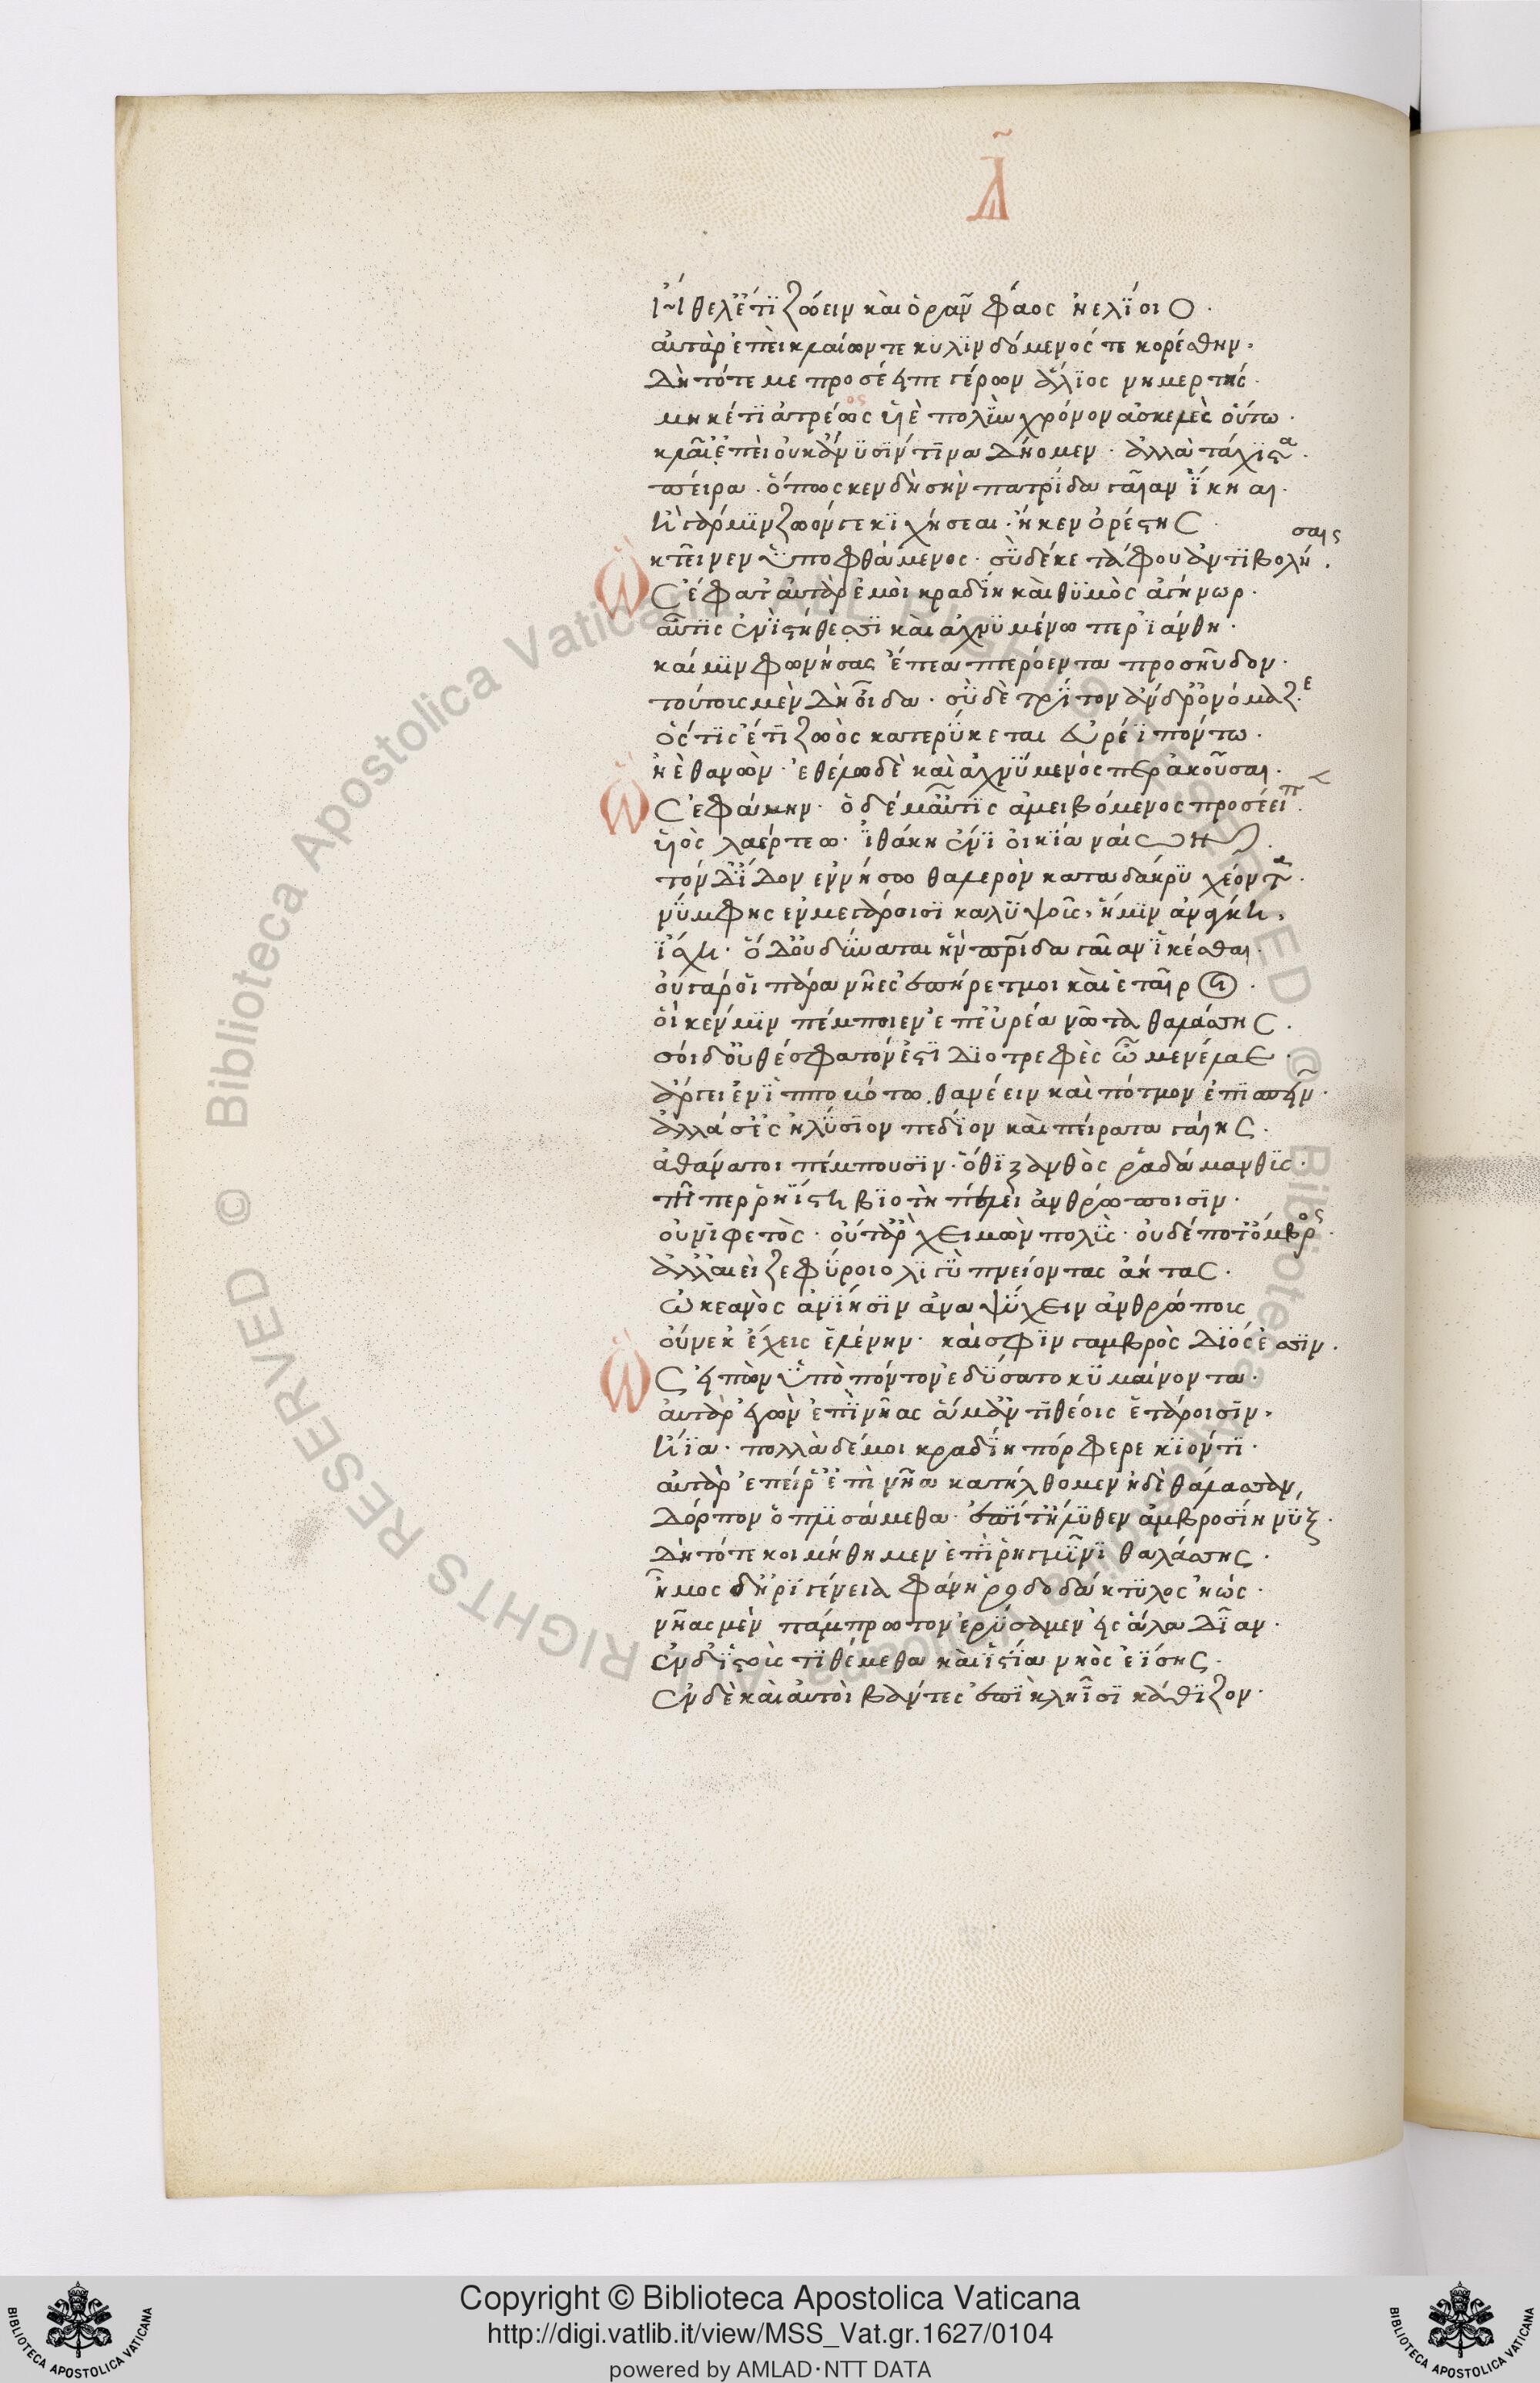 Δ
ἤθελ' ἔτι ζώειν καὶ ὁρᾶν φάος ἠελίοιο.
αὐτὰρ ἐπεὶ κλαίων τε κυλινδόμενός τε κορέσθην.
δὴ τότε με προσέειπε γέρων ἅλιος νημερτής.
μηκέτι ἀτρέως υἱὲ πολὺν χρόνον ἀσκελὲς οὕτω.
κλαῖ' ἐπεὶ οὐκ ἄνυσίν τινα δήομεν. ἀλλὰ τάχιστα.
πείρα. ὅπως κεν δὴ σὴν πατρίδα γαῖαν ἵκηαι.
ἢ γάρ μιν ζωόν γε κιχήσεαι. ἤ κεν ὀρέστης.
κτεῖνεν ὑποφθάμενος. σὺ δέ κε τάφου ἀντιβολήσαις.
Ὣς ἔφατ' αὐτὰρ ἐμοὶ κραδίη καὶ θυμὸς ἀγήνωρ.
αὖτις ἐνὶ στήθεσσι καὶ ἀχνυμένω περ ἰάνθη.
καί μιν φωνήσας ἔπεα πτερόεντα προσηύδον.
τούτοις μὲν δὴ οἶδα. σὺ δὲ τρίτον ἄνδρ' ὀνόμαζε.
ὅς τις ἔτι ζωὸς κατερύκεται εὐρέϊ πόντω.
ἠὲ θανών. ἐθέλω δὲ καὶ ἀχνύμενός περ ἀκοῦσαι.
Ὣς ἐφάμην. ὁ δέ μ' αὖτις ἀμειβόμενος προσέειπε.
υἱὸς λαέρτεω. ἰθάκη ἔνι οἰκία ναίων.
τὸν δ' ἴδον ἐν νήσω θαλερὸν κατὰ δάκρυ χέοντα.
νύμφης ἐν μεγάροισι καλυψοῖς. ἥ μιν ἀνάγκη.
ἴσχει. ὁ δ' οὐ δύναται ἣν πατρίδα γαῖαν ἱκέσθαι.
οὐ γάρ οἱ πάρα νῆες ἐπήρετμοι καὶ ἑταῖροι.
οἵ κέν μιν πέμποιεν ἐπ' εὐρέα νῶτα θαλάσσης.
σοὶ δ' οὐ θέσφατόν ἐστι διοτρεφὲς ὦ μενέλαε.
ἄργει ἐν ἱπποβότω θανέειν καὶ πότμον ἐπισπεῖν.
ἀλλά σ' ἐς ἠλύσιον πεδίον καὶ πείρατα γαίης.
ἀθάνατοι πέμπουσιν. ὅθι ξανθὸς ῥαδάμανθις.
τῆ περ ῥηΐστη βιοτὴ πέλει ἀνθρώποισιν.
οὐ νιφετὸς. οὔτ' ἂρ χειμὼν πολὺς. οὐδέ ποτ' ὄμβρος.
ἀλλ' αἰεὶ ζεφύροιο λιγὺ πνείοντας ἀήτας.
ὠκεανὸς ἀνίησιν ἀναψύχειν ἀνθρώποις
οὕνεκ' ἔχεις ἑλένην. καί σφιν γαμβρὸς διός ἐσσιν.
Ὣς εἰπὼν ὑπὸ πόντον ἐδύσατο κυμαίνοντα.
αὐτὰρ ἐγὼν ἐπὶ νῆας ἅμ' ἀντιθέοις ἑτάροισιν.
ἤια. πολλὰ δέ μοι κραδίη πόρφερε κιόντι.
αὐτὰρ ἐπεί ῥ' ἐπὶ νῆα κατήλθομεν ἠδὲ θάλασσαν,
δόρπον ὁπλισάμεθα. ἐπί τ' ἤλυθεν ἀμβροσίη νύξ.
δὴ τότε κοιμήθημεν ἐπὶ ῥηγμῖνι θαλάσσης.
ἦμος δ' ἠριγένεια φάνη ῥοδοδάκτυλος ἠώς.
νῆας μὲν πάμπρωτον ἐρύσαμεν εἰς ἅλα δῖαν.
ἐν δ' ἱστοὺς τιθέμεθα καὶ ἱστία νηὸς ἐΐσης.
ἐν δὲ καὶ αὐτοὶ βάντες ἐπὶ κληῖσι κάθιζον.
Copyright © Biblioteca Apostolica Vaticana
http://digi.vatlib.it/view/MSS_Vat.gr.1627/0104
powered by AMLAD·NTT DATA